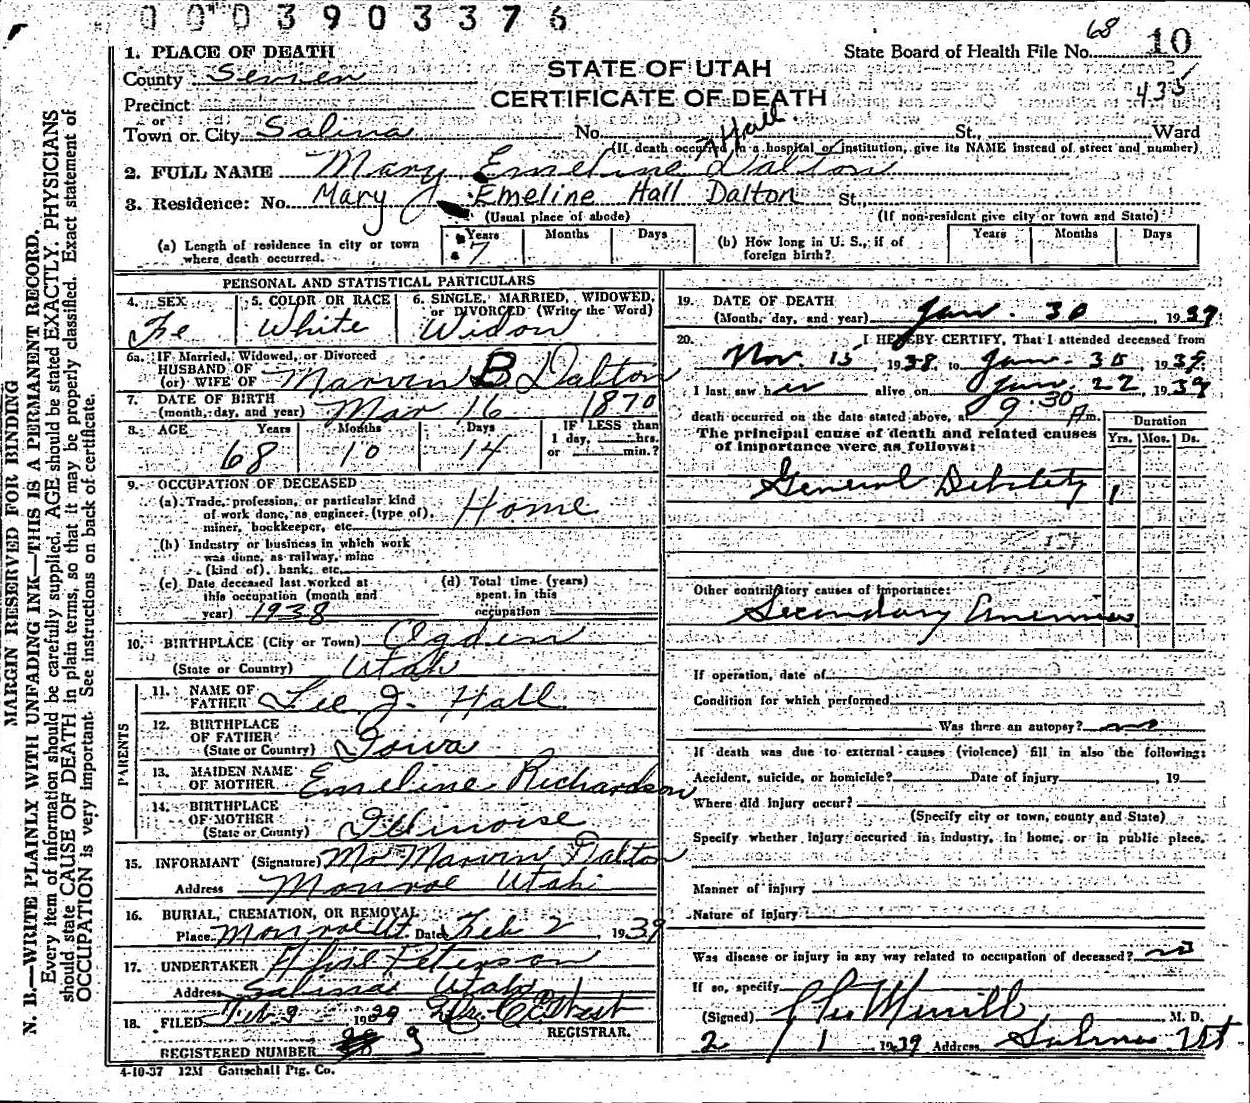 0003903376
1. PLACE OF DEATH
State Board of Health File No. 68 10
County Sevier
STATE OF UTAH
435
Precinct
CERTIFICATE OF DEATH
or
Town or City Salina No. St. Ward
(If death occurred in a hospital or institution, give its NAME instead of street and number)
Hall
2. FULL NAME Mary Emeline Dalton
Mary Emeline Hall Dalton
3. Residence: No. St.
(Usual place of abode) (If non-resident give city or town and State)
(a) Length of residence in city or town where death occurred. Years 7 Months Days
(b) How long in U. S., if of foreign birth? Years Months Days
PERSONAL AND STATISTICAL PARTICULARS
4. SEX Fe
5. COLOR OR RACE White
6. SINGLE, MARRIED, WIDOWED, or DIVORCED (Write the Word) Widow
6a. IF Married, Widowed, or Divorced
HUSBAND OF
(or) WIFE OF Marvin B Dalton
7. DATE OF BIRTH
(month, day, and year) Mar 16 1870
8. AGE Years 68 Months 10 Days 14 IF LESS than 1 day, hrs. or min.?
9. OCCUPATION OF DECEASED
(a) Trade, profession, or particular kind
of work done, as engineer (type of),
miner, bookkeeper, etc. Home
(b) Industry or business in which work
was done, as railway, mine
(kind of), bank, etc.
(c) Date deceased last worked at
this occupation (month and
year) 1938
(d) Total time (years)
spent in this
occupation
10. BIRTHPLACE (City or Town) Ogden
(State or Country) Utah
PARENTS
11. NAME OF FATHER Lee J. Hall
12. BIRTHPLACE OF FATHER
(State or Country) Iowa
13. MAIDEN NAME OF MOTHER Emeline Richardson
14. BIRTHPLACE OF MOTHER
(State or Country) Illinoise
15. INFORMANT (Signature) Mr Marvin Dalton
Address Monroe Utah
16. BURIAL, CREMATION, OR REMOVAL
Place Monroe Ut Date Feb 2, 1939
17. UNDERTAKER Peterson
Address Salina Utah
18. FILED Feb 9 1939 West
REGISTRAR.
REGISTERED NUMBER 9
4-10-37 12M Gottschall Ptg. Co.
19. DATE OF DEATH
(Month, day, and year) Jan. 30 1939
20. I HEREBY CERTIFY, That I attended deceased from
Nov. 15, 1938 to Jan. 30, 1939
I last saw her alive on Jan. 22, 1939
death occurred on the date stated above, at 9:30 A m.
The principal cause of death and related causes
of importance were as follows:
Duration
Yrs. Mos. Ds.
General Debility 1
Other contributory causes of importance:
Secondary Anemia
If operation, date of
Condition for which performed
Was there an autopsy? no
If death was due to external causes (violence) fill in also the following:
Accident, suicide, or homicide? Date of injury, 19
Where did injury occur?
(Specify city or town, county and State)
Specify whether injury occurred in industry, in home, or in public place.
Manner of injury
Nature of injury
Was disease or injury in any way related to occupation of deceased? no
If so, specify
(Signed) Merrill, M. D.
2 / 1 1939 Address Salina Ut
MARGIN RESERVED FOR BINDING
N. B.—WRITE PLAINLY WITH UNFADING INK—THIS IS A PERMANENT RECORD.
Every item of information should be carefully supplied. AGE should be stated EXACTLY. PHYSICIANS
should state CAUSE OF DEATH in plain terms, so that it may be properly classified. Exact statement of
OCCUPATION is very important. See instructions on back of certificate.